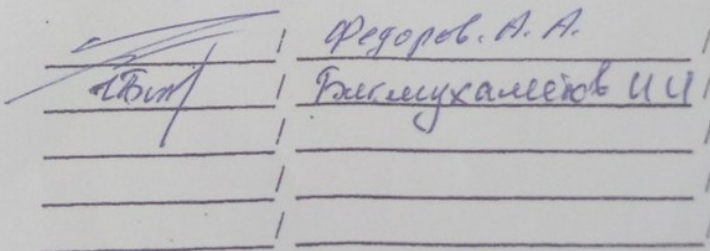 / Федоров. А. А. /
/ Бикмухаметов И И /
/ /
/ /
/ /